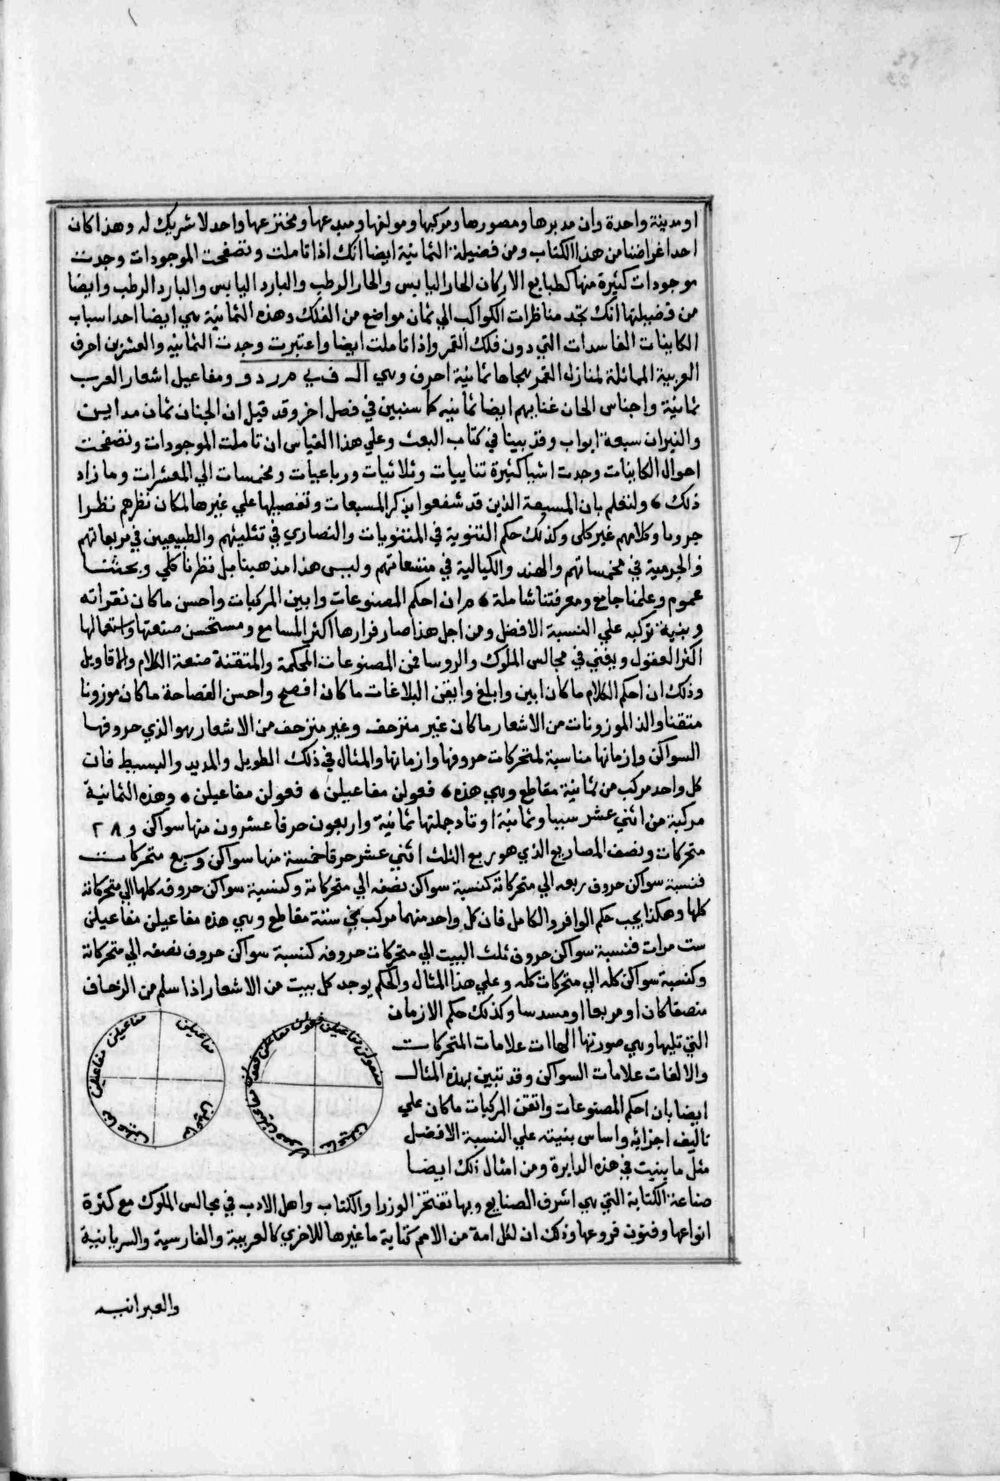 او مدينة واحدة وان مدبرها ومصورها ومركبها ومولفها ومبدعها ومخترعها واحد لا شريك له وهذا كان
احد اغراضنا من هذا الكتاب ومن فضيلة الثمانية ايضا انك اذا تاملت وتصفحت الموجودات وجدت
موجودات كثيرة منها كطبايع الاركان الحار اليابس والحار الرطب والبارد اليابس والبارد الرطب وايضا
من فضيلتها انك تجد مناظرات الكواكب الي ثمان مواضع من الفلك وهذه الثمانية هي ايضا احد اسباب
الكاينات الفاسدات التي دون فلك القمر واذا تاملت ايضا واعتبرت وجدت الثمانيه والعشرين احرف
العربية المماثلة لمنازل القمر هجاها ثمانية احرف وهي ا ل ف ي م ر د و ومفاعيل اشعار العرب
ثمانية واجناس الحان غنايهم ايضا ثمانيه كما سنبين في فصل اخر وقد قيل ان الجنان ثمان مداين
والنيران سبعة ابواب وقد بينا في كتاب البعث وعلي هذا القياس ان تاملت الموجودات وتصفحت
احوال الكاينات وجدت اشيا كثيرة تناييات وثلاثيات ورباعيات ومخمسات الي المعشرات وما زاد
ذلك ، ولنعلم بان المسبعة الذين قد شفعوا بذكر المسبعات وتفصيلها علي غيرها لمكان نظرهم نظرا
جزوما وكلامهم غير كلي وكذلك حكم الثنوية في المثنويات والنصاري في تثليثهم والطبيعيين في مربعاتهم
والجرمية في مخمساتهم والهند والكيالية في متسعاتهم وليس هذا مذهبنا بل نظرنا كلي وبحثنا
عموم وعلمنا جامع ومعرفتنا شاملة ، م ان احكم المصنوعات وابين المركبات واحسن ما كان نقراته
وبنية تركيبه علي النسبة الافضل ومن اجل هذا صار قرارها اكثر المسامع ومستحسن صنعتها واستعالها
اكثر العقول ويغني في مجالس الملوك والروسا فن المصنوعات المحكمة والمتقنة صنعة الكلام والاقاويل
وذلك ان احكم الكلام ما كان ابين وابلغ وابقن البلاغات ما كان افصح واحسن الفصاحة ما كان موزونا
متقنا والذ الموزونات من الاشعار ما كان غير منزحف وغير منزحف من الاشعار هو الذي حروفها
السواكن وازمانها مناسبة لمتحركات حروفها وازمانها والمثال في ذلك الطويل والمديد والبسيط فان
كل واحد مركب من ثمانية مقاطع وهي هذه ، فعولن مفاعيلن ، فعولن مفاعيلن ، وهذه الثمانية
مركبة من اثني عشر سببا وثمانية اوتاد جملتها ثمانية واربعون حرفا عشرون منها سواكن و ٢٨
متحركات ونصف المصاريع الذي هو ربع الثلث اثني عشر حرفا خمسة منها سواكن وسبع متحركات
فنسبة سواكن حروف ربعه الي متحركاته كنسبة سواكن نصفه الي متحركاته وكنسبة سواكن حروفه كلها الي متحركاته
كلها وهكذا يجب حكم الوافر والكامل فان كل واحد منهما مركب من ستة مقاطع وهي هذه مفاعيلن مفاعيلن
ست مرات فنسبة سواكن حروف ثلث البيت الي متحركات حروفه كنسبة سواكن حروف نصفه الي متحركاته
وكنسبة سواكن كله الي متحركات كله وعلي هذا المثال والحكم يوجد كل بيت من الاشعار اذا سلم من الزحاف
منصفا كان او مربعا او مسدسا وكذلك حكم الازمان
التي تليها وهي صورتها الهاات علامات المتحركات
والالفات علامات السواكن وقد تبين بهذه المثال
ايضا بان احكم المصنوعات واتقن المركبات ما كان علي
تاليف اجزايه واساس بنيته علي النسبة الافضل
مثل ما بينت في هذه الدايرة ومن امثال ذلك ايضا
صناعة الكتابة التي هي اشرف الصنايع وبها تفتخر الوزرا والكتاب واهل الادب في مجالس الملوك مع كثرة
انواعها وفنون فروعها وذلك ان لكل امة من الامم كتابة ما غيرها للاخري كالعربية والفارسية والسريانية
فعولن مفاعيلن فعولن مفاعيلن
مفاعيلن مفاعيلن مفاعيلن مفاعيلن مفاعيلن مفاعيلن
والعبرانيه